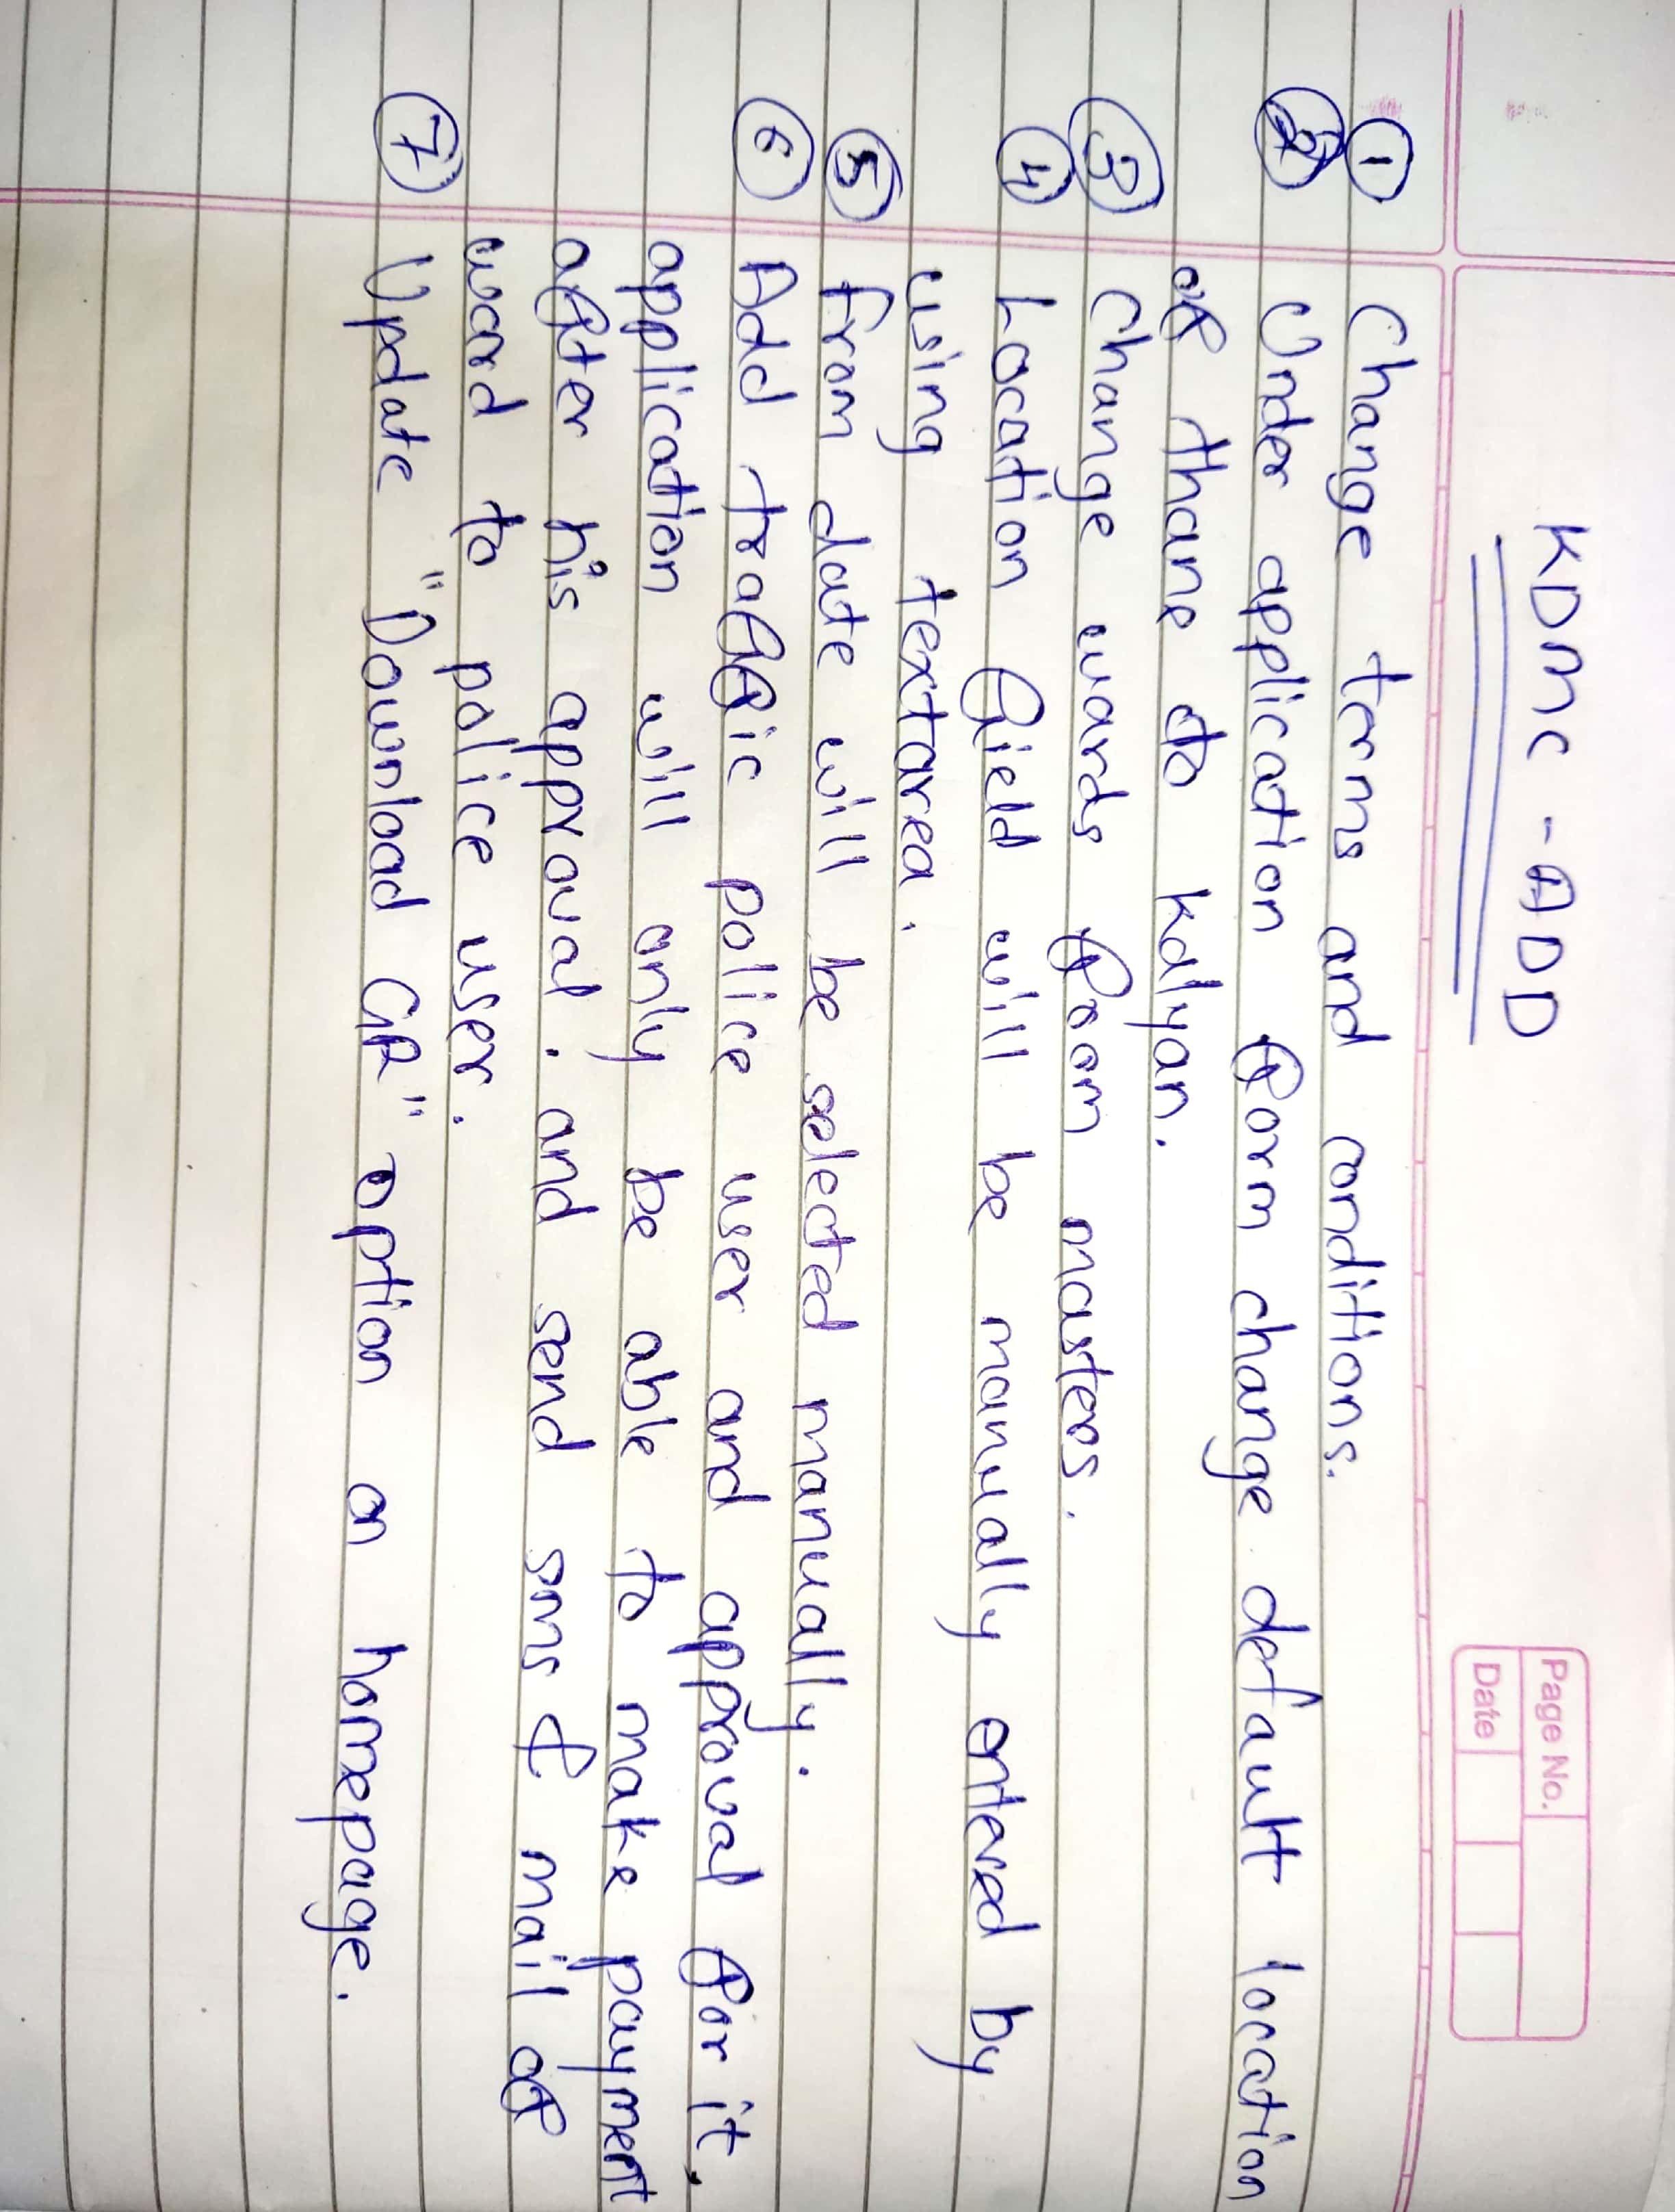 KDMC - ADD
Page No.
Date
1 Change terms and conditions.
2 Under application form change default location
of thane to kalyan.
3 Change wards from masters.
4 Location field will be manually entered by
using textarea.
5 from date will be selected manually.
6 Add traffic police user and approval for it,
application will only be able to make payment
after his approval. and send sms & mail of
ward to police user.
7 Update "Download GR" option on homepage.